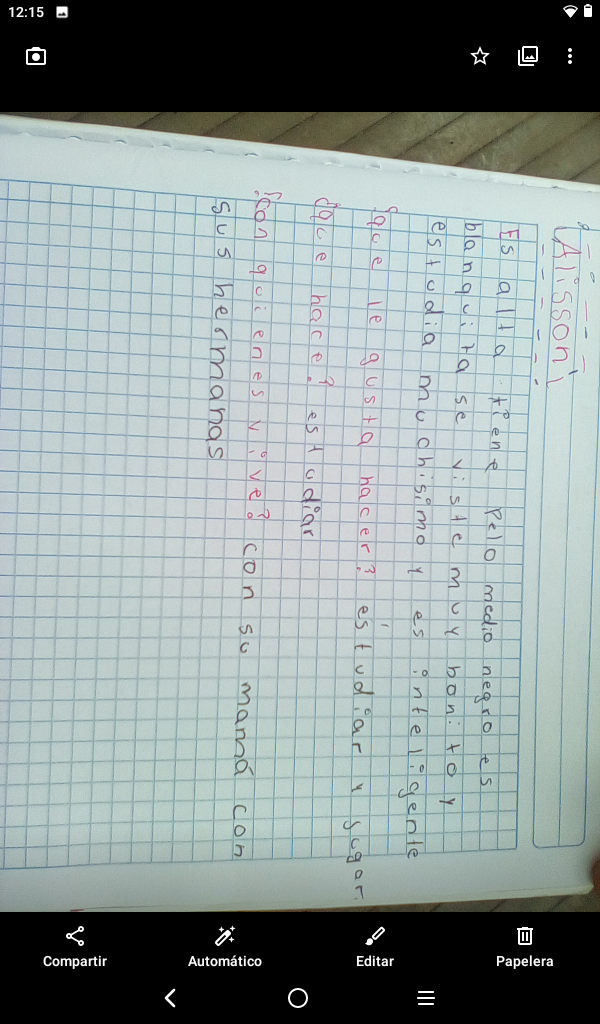 12:15
Alisson
Es alta tiene pelo medio negro es
blanquita se viste muy bonito y
estudia muchisimo y es inteligente
¿que le gusta hacer? estudiar y jugar
¿que hace? estudiar
¿Con quienes vive? con su mamá con
sus hermanas
Compartir
Automático
Editar
Papelera